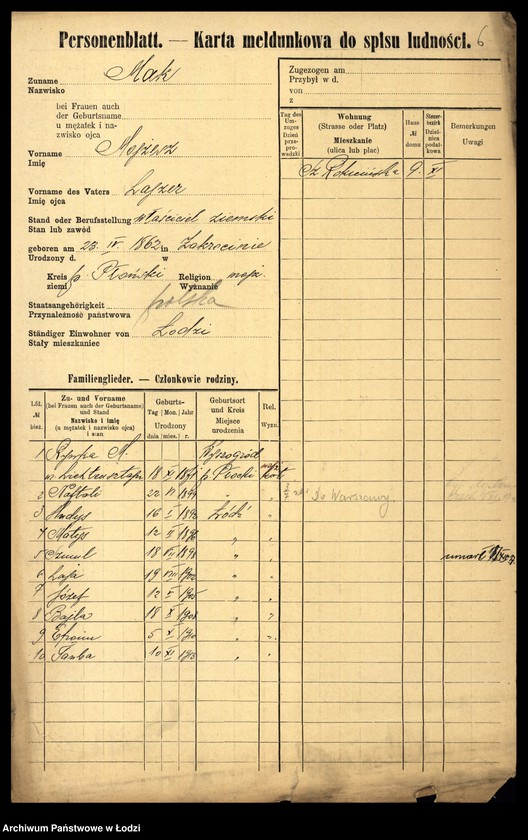 Personenblatt. — Karta meldunkowa do spisu ludności. 6
Zuname Mak
Nazwisko
bei Frauen auch
der Geburtsname
u mężatek i na-
zwisko ojca
Vorname Mojżesz
Imię
Vorname des Vaters Lajzer
Imię ojca
Stand oder Berufsstellung właściciel ziemski
Stan lub zawód
geboren am 23. IV. 1862 in Zakrocimie
Urodzony d. w
Kreis p. Płoński Religion mojż.
ziemi Wyznanie
Staatsangehörigkeit polska
Przynależność państwowa
Ständiger Einwohner von Łodzi
Stały mieszkaniec
Zugezogen am
Przybył w d.
von
z
Tag des Um-zuges Dzień prze-prowadzki
Wohnung (Strasse oder Platz) Mieszkanie (ulica lub plac)
Haus № domu
Steuer-bezirk Dziel-nica podat-kowa
Bemerkungen Uwagi
Sz. Rokicińska 9. XI
Familienglieder. — Członkowie rodziny.
Lfd. № bież.
Zu- und Vorname (bei Frauen auch der Geburtsname) und Stand Nazwisko i imię (u mężatek i nazwisko ojca) i stan
Geburts- Tag Mon. Jahr Urodzony dnia mies. r.
Geburtsort und Kreis Miejsce urodzenia
Rel. Wyzn.
1 Ryfka M. Wyszogród
18 XI 1871 p. Płocki mojż.
2 Naftoli 22 1894 " " Do Warszawy
3 16 I 1896 Łódź "
4 Matys 12 II 1898 " "
5 Szmul 18 VII 1898 " " umarł
6 Łaja 19 VIII 1902 " "
7 Józef 12 I 1905 " "
8 Bajla 18 X 1908 " "
9 Efroim 5 X 1910 " "
10 10 XI 1913 " "
Archiwum Państwowe w Łodzi